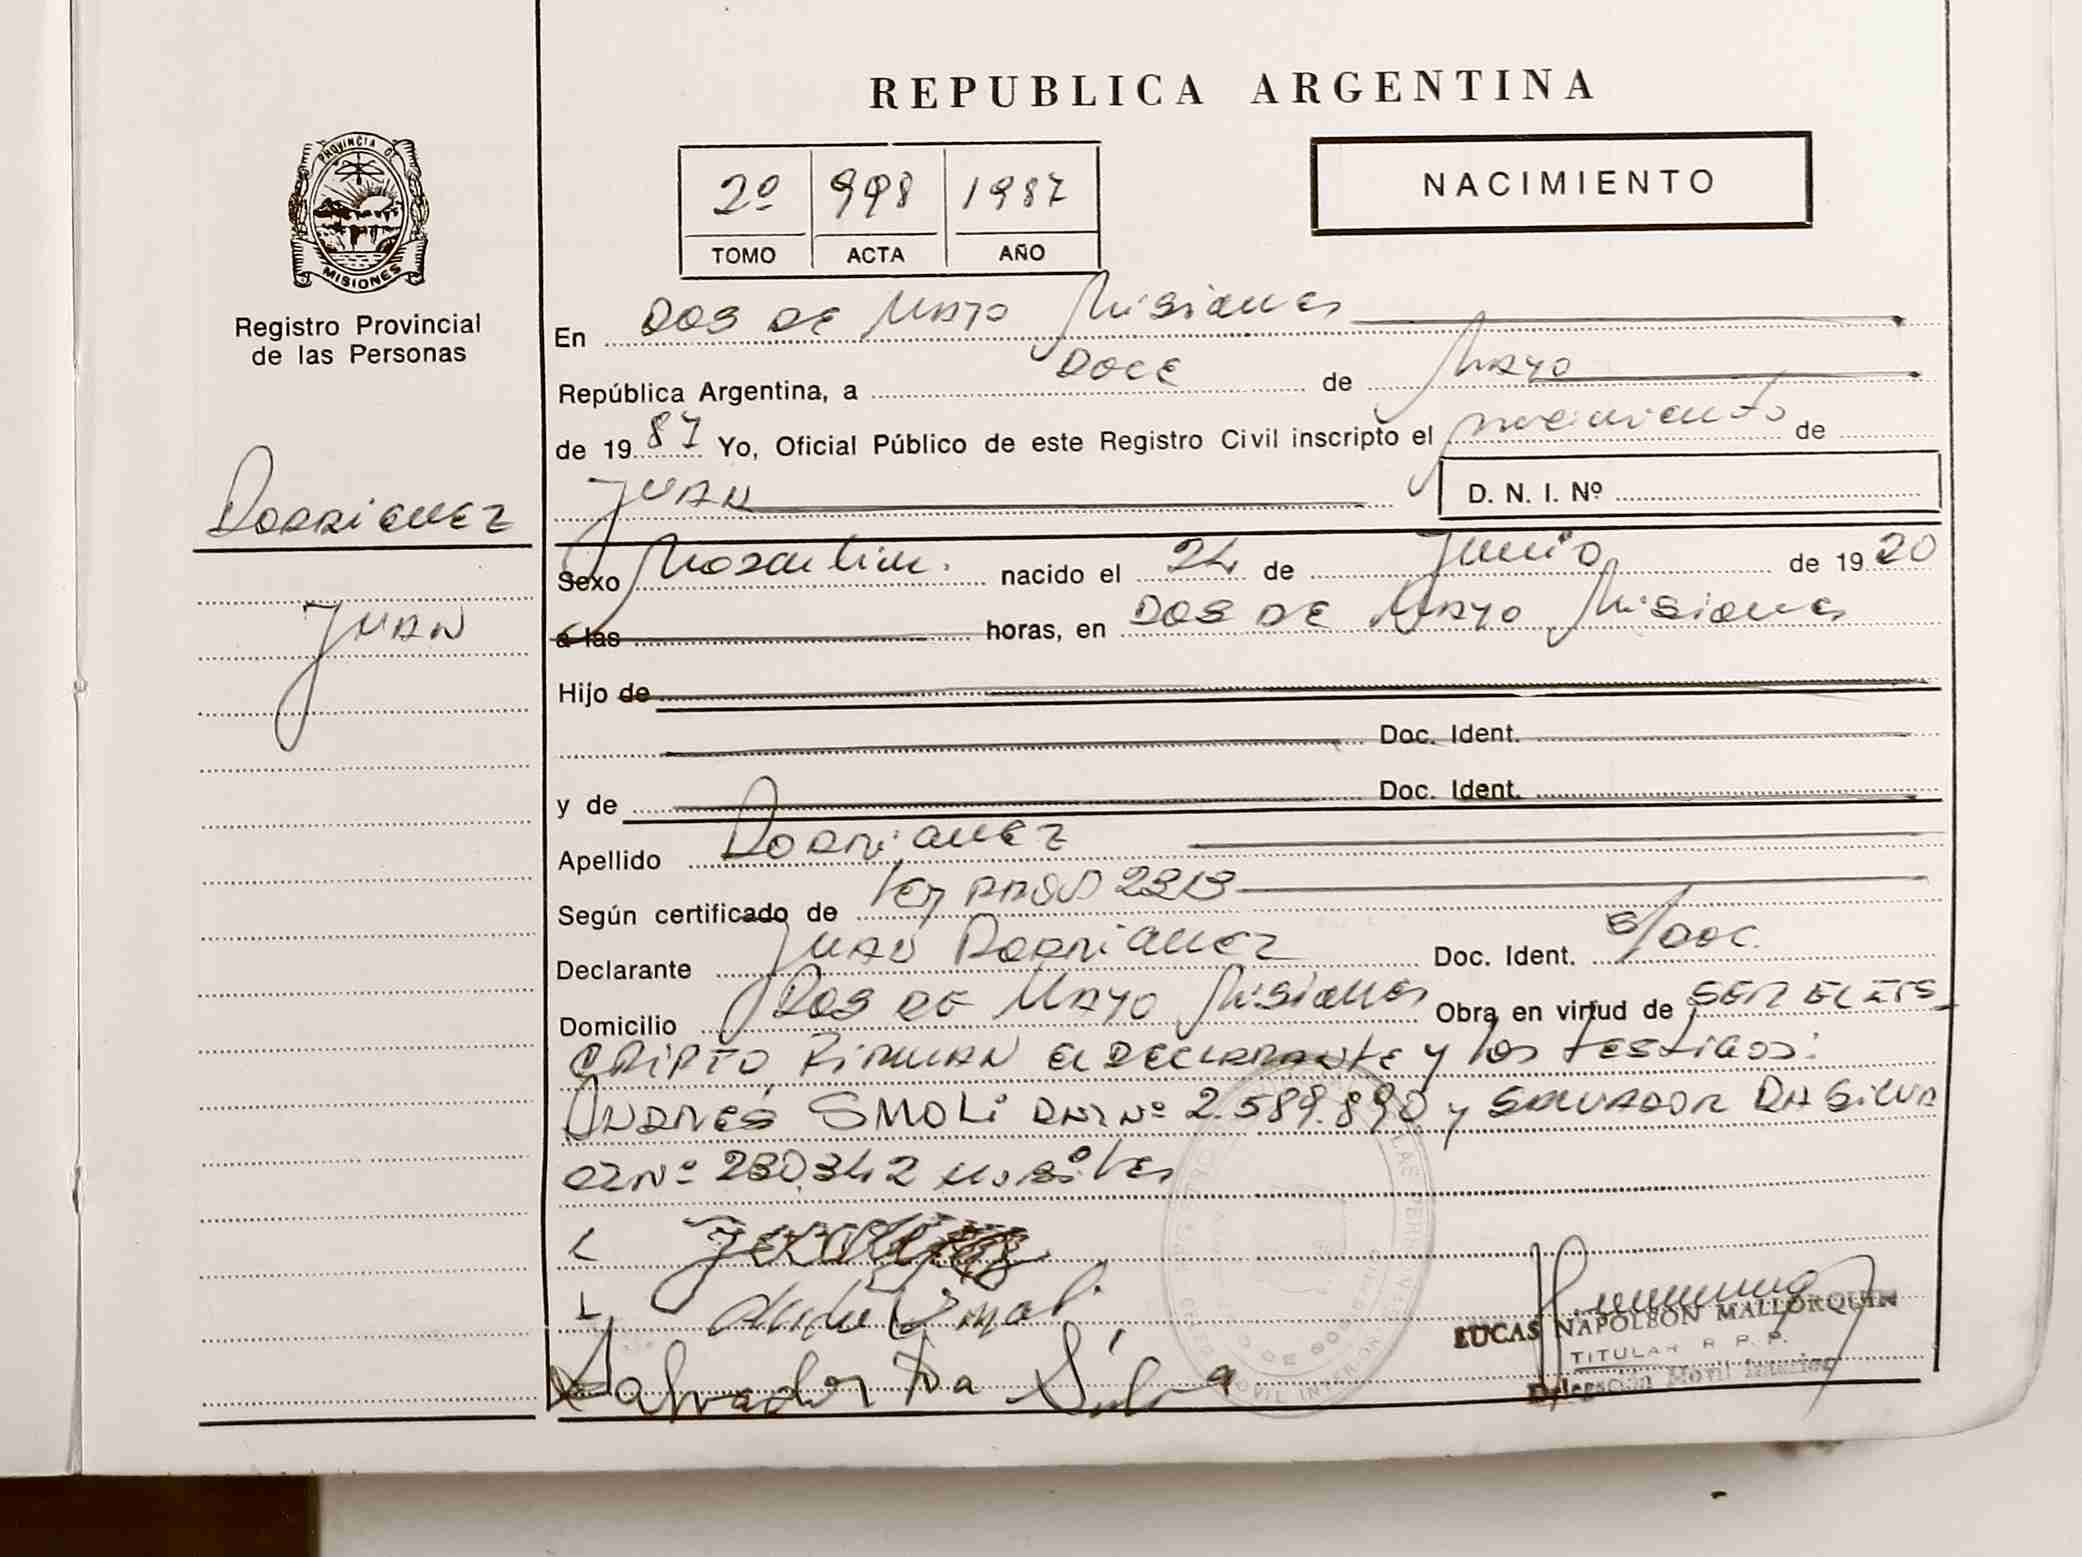 REPUBLICA ARGENTINA
NACIMIENTO
2º 998 1987
TOMO ACTA AÑO
PROVINCIA DE MISIONES
Registro Provincial
de las Personas
Dorriguez
Juan
En Dos de Mayo Misiones
República Argentina, a Doce de Mayo
de 1987 Yo, Oficial Público de este Registro Civil inscripto el nacimiento de
Juan D. N. I. Nº
Sexo Masculino. nacido el 24 de Junio de 1920
a las horas, en Dos de Mayo Misiones
Hijo de
Doc. Ident.
y de Doc. Ident.
Apellido Dorriguez
Según certificado de Ley Prov 2313
Declarante Juan Dorriguez Doc. Ident. s/doc.
Domicilio Dos de Mayo Misiones Obra en virtud de ser el ins
cripto Firman el declarante y los testigos:
Andrés Smoli DNI Nº 2.589.890 y Salvador Da Silva
CI Nº 230.342 Misiones
Salvador Da Silva
LUCAS NAPOLEON MALLORQUIN
TITULAR R. P. P.
Delegación Movil Interior